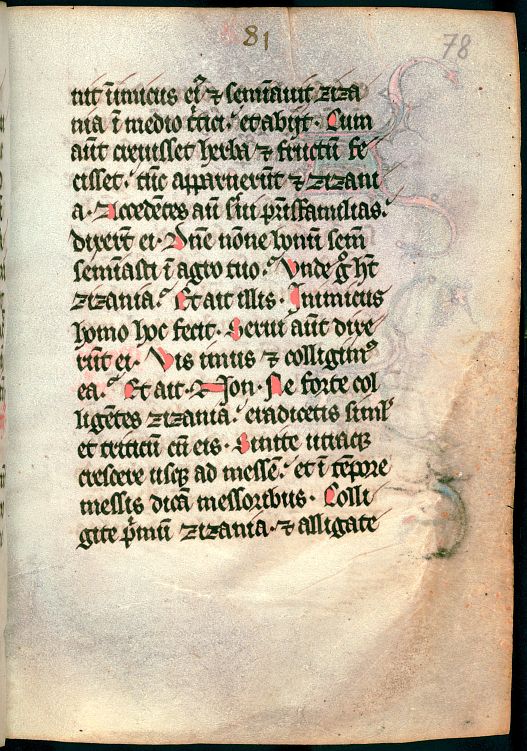 81
78
nit īimicus eiꝰ ⁊ semīauit ziza
nia ī medio t̄tici. et abijt. Cum
aūt creuisset herba ⁊ fructū fe
cisset. tūc apparuerūt ⁊ zizani
a. Accedētes aū s̄ui pr̄isfamilias.
dixert̄ ei. Dn̄e nōne bonū sem̄
semīasti ī agro tuo. Vnde gͦ hꝫt
zizania. Et ait illis. Inimicus
homo hoc fecit. Serui aūt dixe
rūt ei. Vis imus ⁊ colligimꝰ
ea. Et ait. Non. Ne forte col
ligētes zizania. eradicetis siml̓
et triticū cū eis. Sinite utraqꝫ
crescere usqꝫ ad messē. et ī tēpore
messis dicā messoribus. Colli
gite p̓mū zizania. ⁊ alligate